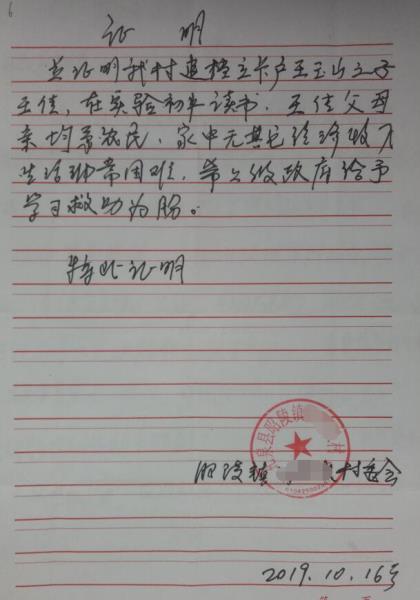 6
证 明
兹证明我村建档立卡户王玉山之子
王佳,在实验初中读书.王佳父母
亲均系农民,家中无其它经济收入
生活非常困难,希上级政府给予
学习救助为盼。
特此证明
礼泉县昭陵镇 村
昭陵镇 村委会
2019.10.16号